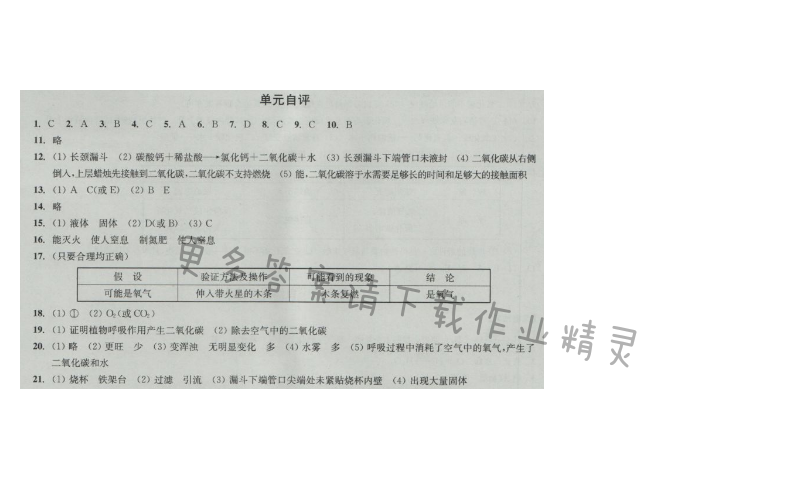 单元自评
1. C 2. A 3. B 4. C 5. A 6. B 7. D 8. C 9. C 10. B
11. 略
12. (1) 长颈漏斗 (2) 碳酸钙＋稀盐酸→氯化钙＋二氧化碳＋水 (3) 长颈漏斗下端管口未液封 (4) 二氧化碳从右侧
倒入,上层蜡烛先接触到二氧化碳,二氧化碳不支持燃烧 (5) 能,二氧化碳溶于水需要足够长的时间和足够大的接触面积
13. (1) A C(或 E) (2) B E
14. 略
15. (1) 液体 固体 (2) D(或 B) (3) C
16. 能灭火 使人窒息 制氮肥 使人窒息
17. (只要合理均正确)
假 设 验证方法及操作 可能看到的现象 结 论
可能是氧气 伸入带火星的木条 木条复燃 是氧气
18. (1) ① (2) O₂(或 CO₂)
19. (1) 证明植物呼吸作用产生二氧化碳 (2) 除去空气中的二氧化碳
20. (1) 略 (2) 更旺 少 (3) 变浑浊 无明显变化 多 (4) 水雾 多 (5) 呼吸过程中消耗了空气中的氧气,产生了
二氧化碳和水
21. (1) 烧杯 铁架台 (2) 过滤 引流 (3) 漏斗下端管口尖端处未紧贴烧杯内壁 (4) 出现大量固体
更多答案请下载作业精灵